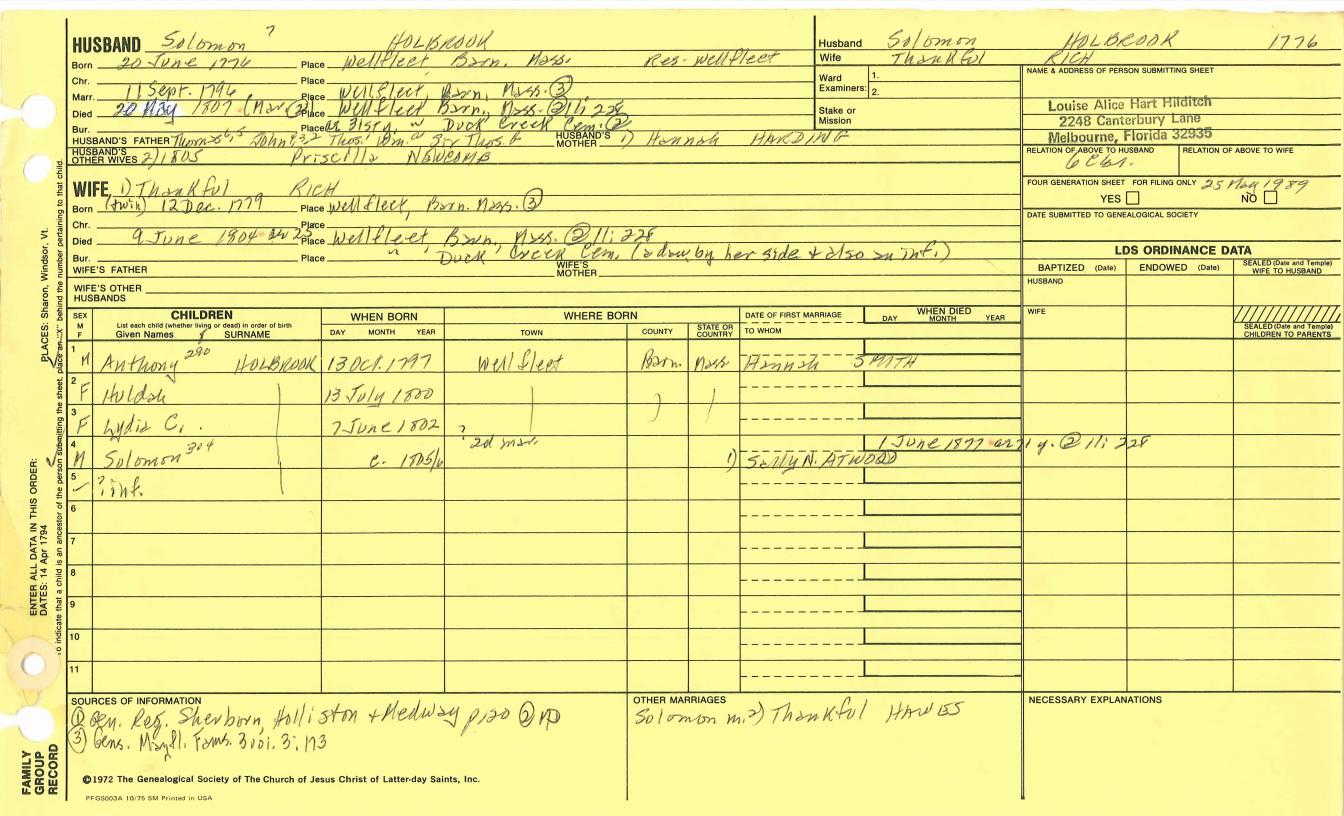 HUSBAND Solomon 7 HOLBROOK
Born 20 June 1776 Place Wellfleet Barn. Mass. Res- Wellfleet
Chr. Place
Marr. 11 Sept. 1796 Place Wellfleet, Barn, Mass. ③
Died 20 May 1807 (Mar ③) Place Wellfleet Barn, Mass. ② 11; 228
Bur. Place ae 31 5/12 y. " Duck Creek Cem. ②
HUSBAND'S FATHER Thomas 6,5 John 4,3,2 Thos.1 Wm.a Sir Thos.b HUSBAND'S MOTHER 1) Hannah HARDING
HUSBAND'S OTHER WIVES 2) 1805 Priscilla NEWCOMB
WIFE 1) Thankful RICH
Born (twin) 12 Dec. 1779 Place Wellfleet, Barn. Mass. ③
Chr. Place
Died 9 June 1804 Place Wellfleet, Barn, Mass. ② 11; 228
Bur. Place " Duck Creek Cem. (a daw by her side & also an inf.)
WIFE'S FATHER WIFE'S MOTHER
WIFE'S OTHER HUSBANDS
Husband Solomon HOLBROOK 1776
Wife Thankful RICH
Ward Examiners: 1. 2.
Stake or Mission
NAME & ADDRESS OF PERSON SUBMITTING SHEET
Louise Alice Hart Hilditch
2248 Canterbury Lane
Melbourne, Florida 32935
RELATION OF ABOVE TO HUSBAND RELATION OF ABOVE TO WIFE
FOUR GENERATION SHEET FOR FILING ONLY 25 May 1989
YES NO
DATE SUBMITTED TO GENEALOGICAL SOCIETY
LDS ORDINANCE DATA
BAPTIZED (Date) ENDOWED (Date) SEALED (Date and Temple) WIFE TO HUSBAND
HUSBAND
WIFE
SEALED (Date and Temple) CHILDREN TO PARENTS
SEX M F CHILDREN WHEN BORN WHERE BORN DATE OF FIRST MARRIAGE WHEN DIED
List each child (whether living or dead) in order of birth
Given Names 8 SURNAME DAY MONTH YEAR TOWN COUNTY STATE OR COUNTRY TO WHOM DAY MONTH YEAR
1 M Anthony 290 HOLBROOK 13 Oct. 1797 Wellfleet Barn. Mass Hannah SMITH
2 F Huldah 13 July 1800
3 F Lydia C. 7 June 1802
4 M Solomon 304 c. 1805/6 ? 2d mar. 1) Sally N. ATWOOD 1 June 1877 ae 71 y. ② 11; 228
5 ? inf.
6
7
8
9
10
11
SOURCES OF INFORMATION
① Gen. Reg. Sherborn, Holliston & Medway p 120 ② MD
③ Gens. Mayfl. Fams. 3 vol. 3; 173
OTHER MARRIAGES
Solomon m. 2) Thankful HAWES
NECESSARY EXPLANATIONS
©1972 The Genealogical Society of The Church of Jesus Christ of Latter-day Saints, Inc.
PFGS003A 10/75 SM Printed in USA
FAMILY GROUP RECORD
ENTER ALL DATA IN THIS ORDER:
DATES: 14 Apr 1794
PLACES: Sharon, Windsor, Vt.
To indicate that a child is an ancestor of the person submitting the sheet, place an "X" behind the number pertaining to that child.